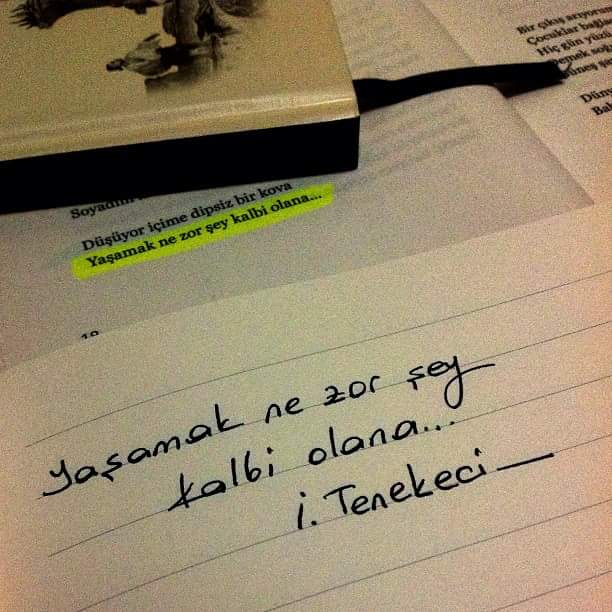 Bir çıkış arıyorum
Çocuklar
Hiç gün yüzü
Düny
Soyadım
Düşüyor içime dipsiz bir kova
Yaşamak ne zor şey kalbi olana...
Yaşamak ne zor şey
kalbi olana...
İ. Tenekeci